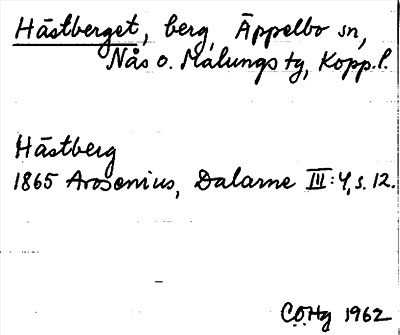 Hästberget, berg, Äppelbo sn,
Nås o. Malungs tg, Kopp. l.
Hästberg
1865 Arosenius, Dalarne III: 4, s. 12.
C.O.Hg 1962